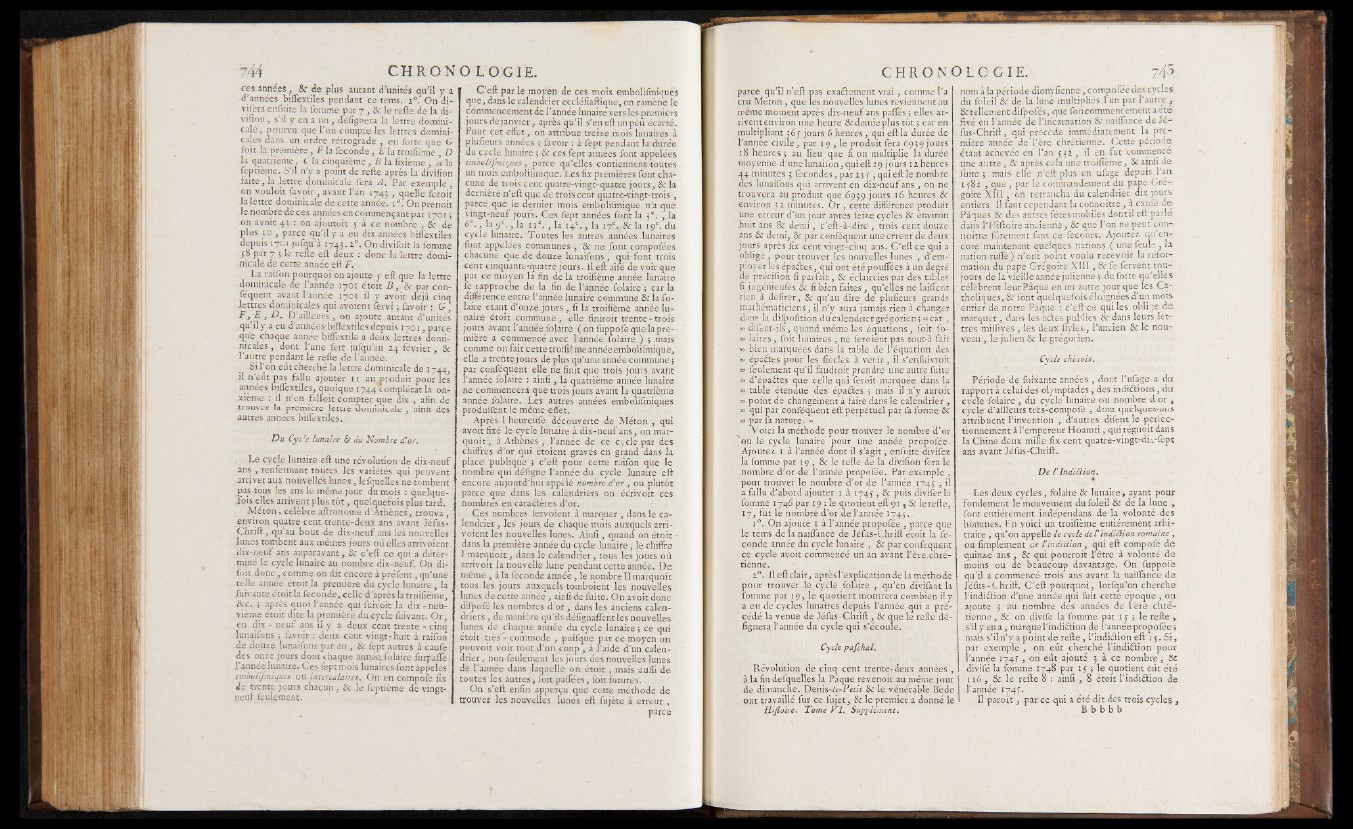 744 CHRONOLOGIE.
ces années, & de plus autant d'unités qu'il y a
d'années bissextiles pendant ce tems. 2°. On di-
visera ensuite la somme par 7, & le reste de la di-
vision, s'il y en a un, désignera la lettre domini-
cale, pourvu que l'on compte les lettres domini-
cales dans un ordre rétrograde, en sorte que G
soit la première, F la seconde, E la troisième, D
la quatrième, C la cinquième, B la sixième, A la
septième. S'il n'y a point de reste après la division
faite, la lettre dominicale sera A. Par exemple,
on vouloit savoir, avant l'an 1743, quelle seroit
la lettre dominicale de cette année. 1°. On prenoit
le nombre de ces années en commençant par 1701;
on avoit 43 : on ajoutoit 5 à ce nombre, & de
plus 10, parce qu'il y a eu dix années bissextiles
depuis 1701 jusqu'à 1743. 2°. On divisoit la somme
58 par 7; le reste est deux : donc la lettre domi-
nicale de cette année est F.
La raison pourquoi on ajoute 5 est que la lettre
dominicale de l'année 1701 étoit B, & par con-
séquent avant l'année 1701 il y avoit déjà cinq
lettres dominicales qui avoient servi; savoir : G,
F, E, D. D'ailleurs, on ajoute autant d'unités
qu'il y a eu d'années bissextiles depuis 1701, parce
que chaque année bissextile a deux lettres domi-
nicales, dont l'une sert jusqu'au 24 février, &
l'autre pendant le reste de l'année.
Si l'on eût cherché la lettre dominicale de 1744,
il n'eût pas fallu ajouter 11 au produit pour les
années bissextiles, quoique 1744 complétât la on-
zième : il n'en falloit compter que dix, afin de
trouver la première lettre dominicale, ainsi des
autres années bissextiles.
Du Cycle lunaire & du Nombre d'or.
Le cycle lunaire est une révolution de dix-neuf
ans, renfermant toutes les variétés qui peuvent
arriver aux nouvelles lunes, lesquelles ne tombent
pas tous les ans le même jour du mois : quelque-
fois elles arrivent plus tôt, quelquefois plus tard.
Méton, célèbre astronome d'Athènes, trouva,
environ quatre cent trente-deux ans avant Jésus-
Christ, qu'au bout de dix-neuf ans les nouvelles
lunes tombent aux mêmes jours où elles arrivoient
dix-neuf ans auparavant, & c'est ce qui a déter-
miné le cycle lunaire au nombre dix-neuf. On di-
soit donc, comme on dit encore à présent, qu'une
telle année étoit la première du cycle lunaire, la
suivante étoit la seconde, celle d'après la troisième,
&c.; après quoi l'année qui suivoit la dix-neu-
vième étoit dite la première du cycle suivant. Or,
en dix-neuf ans il y a deux cent trente-cinq
lunaisons; savoir : deux cent vingt-huit à raison
de douze lunaisons par an, & sept autres à cause
des onze jours dont chaque année solaire surpasse
l'année lunaire. Ces sept mois lunaires sont appelés
embolismiques ou intercalaires. On en compose six
de trente jours chacun, & le septième de vingt-
neuf seulement.
C'est par le moyen de ces mois embolismiques
que, dans le calendrier ecclésiastique, on ramène le
commencement de l'année lunaire vers les premiers
jours de janvier, après qu'il s'en est un peu écarté.
Pour cet effet, on attribue treize mois lunaires à
plusieurs années; savoir : à sept pendant la durée
du cycle lunaire; & ces sept années sont appelées
embolismiques, parce qu'elles contiennent toutes
un mois embolismique. Les six premières sont cha-
cune de trois cent quatre-vingt-quatre jours, & la
dernière n'est que de trois cent quatre-vingt-trois,
parce que le dernier mois embolismique n'a que
vingt-neuf jours. Ces sept années sont la 3°., la
6°., la 9°., la 11°., la 14°., la 17°. & la 19°. du
cycle lunaire. Toutes les autres années lunaires
sont appelées communes, & ne sont composées
chacune que de douze lunaisons, qui font trois
cent cinquante-quatre jours. Il est aisé de voir que
par ce moyen la fin de la troisième année lunaire
se rapproche de la fin de l'année solaire; car la
différence entre l'année lunaire commune & la so-
laire étant d'onze jours, si la troisième année lu-
naire étoit commune, elle finiroit trente-trois
jours avant l'année solaire (on suppose que la pre-
mière a commencé avec l'année solaire); mais
comme on fait cette troisième année embolismique,
elle a trente jours de plus qu'une année commune;
par conséquent elle ne finit que trois jours avant
l'année solaire : ainsi, la quatrième année lunaire
ne commencera que trois jours avant la quatrième
année solaire. Les autres années embolismiques
produisent le même effet.
Après l'heureuse découverte de Méton, qui
avoit fixé le cycle lunaire à dix-neuf ans, on mar-
quoit, à Athènes, l'année de ce cycle par des
chiffres d'or qui étoient gravés en grand dans la
place publique; c'est pour cette raison que le
nombre qui désigne l'année du cycle lunaire est
encore aujourd'hui appelé nombre d'or, ou plutôt
parce que dans les calendriers on écrivoit ces
nombres en caractères d'or.
Ces nombres servoient à marquer, dans le ca-
lendrier, les jours de chaque mois auxquels arri-
voient les nouvelles lunes. Ainsi, quand on étoit
dans la première année du cycle lunaire, le chiffre
I marquoit, dans le calendrier, tous les jours où
arrivoit la nouvelle lune pendant cette année. De
même, à la seconde année, le nombre II marquoit
tous les jours auxquels tomboient les nouvelles
lunes de cette année, ainsi de suite. On avoit donc
disposé les nombres d'or, dans les anciens calen-
driers, de manière qu'ils désignassent les nouvelles
lunes de chaque année du cycle lunaire; ce qui
étoit très-commode, puisque par ce moyen on
pouvoit voir tout d'un coup, à l'aide d'un calen-
drier, non-seulement les jours des nouvelles lunes
de l'année dans laquelle on étoit, mais aussi de
toutes les autres, soit passées, soit futures.
On s'est enfin apperçu que cette méthode de
trouver les nouvelles lunes est sujète à erreur,
parce
CHRONOLOGIE. 745
parce qu'il n'est pas exactement vrai, comme l'a
cru Méton, que les nouvelles lunes reviennent au
même moment après dix-neuf ans passés; elles ar-
rivent environ une heure & demie plus tôt; car en
multipliant 365 jours 6 heures, qui est la durée de
l'année civile, par 19, le produit sera 6939 jours
18 heures; au lieu que si on multiplie la durée
moyenne d'une lunaison, qui est 29 jours 12 heures
44 minutes 3 secondes, par 235, qui est le nombre
des lunaisons qui arrivent en dix-neuf ans, on ne
trouvera au produit que 6939 jours 16 heures &
environ 32 minutes. Or, cette différence produit
une erreur d'un jour après seize cycles & environ
huit ans & demi, c'est-à-dire, trois cent douze
ans & demi, & par conséquent une erreur de deux
jours après six cent vingt-cinq ans. C'est ce qui a
obligé, pour trouver les nouvelles lunes, d'em-
ployer les épactes, qui ont été poussées à un degré
de précision si parfait, & éclaircies par des tables
si ingénieuses & si bien faites, qu'elles ne laissent
rien à desirer, & qu'au dire de plusieurs grands
mathématiciens, il n'y aura jamais rien à changer
dans la disposition du calendrier grégorien; « car,
» disent-ils, quand même les équations, soit so-
» laires, soit lunaires, ne seroient pas tout-à-fait
» bien marquées dans la table de l'équation des
» épactes pour les siècles à venir, il s'ensuivroit
» seulement qu'il faudroit prendre une autre suite
» d'épactes que celle qui seroit marquée dans la
» table étendue des épactes; mais il n'y auroit
» point de changement à faire dans le calendrier,
» qui par conséquent est perpétuel par sa forme &
» par sa nature. »
Voici la méthode pour trouver le nombre d'or
ou le cycle lunaire pour une année proposée.
Ajoutez 1 à l'année dont il s'agit, ensuite divisez
la somme par 19, & le reste de la division sera le
nombre d'or de l'année proposée. Par exemple,
pour trouver le nombre d'or de l'année 1745, il
a fallu d'abord ajouter 1 à 1745, & puis diviser la
somme 1746 par 19 : le quotient est 91, & le reste,
17, fut le nombre d'or de l'année 1745.
1°. On ajoute 1 à l'année proposée, parce que
le tems de la naissance de Jésus-Christ étoit la se-
conde année du cycle lunaire, & par conséquent
ce cycle avoit commencé un an avant l'ère chré-
tienne.
2°. Il est clair, après l'explication de la méthode
pour trouver le cycle solaire, qu'en divisant la
somme par 19, le quotient montrera combien il y
a eu de cycles lunaires depuis l'année qui a pré-
cédé la venue de Jésus-Christ, & que le reste dé-
signera l'année du cycle qui s'écoule.
Cycle paschal.
Révolution de cinq cent trente-deux années,
à la fin desquelles la Pâque revenoit au même jour
de dimanche. Denis-le-Petit & le vénérable Bède
ont travaillé sur ce sujet, & le premier a donné le
Histoire. Tome VI. Supplément.
nom à la période dionysienne, composée des cycles
du soleil & de la lune multipliés l'un par l'autre,
& tellement disposés, que son commencement a été
fixé en l'année de l'incarnation & naissance de Jé-
sus-Christ, qui précède immédiatement la pre-
mière année de l'ère chrétienne. Cette période
étant achevée en l'an 532, il en fut commencé
une autre, & après cela une troisième, & ainsi de
suite; mais elle n'est plus en usage depuis l'an
1582, que, par le commandement du pape Gré-
goire XIII, on retrancha du calendrier dix jours
entiers. Il faut cependant la connoître, à cause de
Pâques & des autres fêtes mobiles dont il est parlé
dans l'Histoire ancienne, & que l'on ne peut con-
noître sûrement sans ce secours. Ajoutez qu'en-
core maintenant quelques nations (une seule, la
nation russe) n'ont point voulu recevoir la réfor-
mation du pape Grégoire XIII, & se servent tou-
jours de la vieille année julienne; de sorte qu'elles
célèbrent leur Pâque en un autre jour que les Ca-
tholiques, & sont quelquefois éloignées d'un mois
entier de notre Pâque : c'est ce qui les oblige de
marquer, dans les actes publics & dans leurs let-
tres missives, les deux styles, l'ancien & le nou-
veau, le julien & le grégorien.
Cycle chinois.
Période de soixante années, dont l'usage a du
rapport à celui des olympiades, des indictions, du
cycle solaire, du cycle lunaire ou nombre d'or,
cycle d'ailleurs très-composé, dont quelques-uns
attribuent l'invention, d'autres disent le perfec-
tionnement à l'empereur Hoamti, qui régnoit dans
la Chine deux mille six cent quatre-vingt-dix-sept
ans avant Jésus-Christ.
De l'Indiction.
Les deux cycles, solaire & lunaire, ayant pour
fondement le mouvement du soleil & de la lune,
sont entiérement indépendans de la volonté des
hommes. En voici un troisième entiérement arbi-
traire, qu'on appelle le cycle de l'indiction romaine,
ou simplement de l'indiction, qui est composé de
quinze ans, & qui pouvoit l'être à volonté de
moins ou de beaucoup davantage. On suppose
qu'il a commencé trois ans avant la naissance de
Jésus-Christ. C'est pourquoi, lorsqu'on cherche
l'indiction d'une année qui suit cette époque, on
ajoute 3 au nombre des années de l'ère chré-
tienne, & on divise la somme par 15; le reste,
s'il y en a, marque l'indiction de l'année proposée;
mais s'il n'y a point de reste, l'indiction est 15. Si,
par exemple, on eût cherché l'indiction pour
l'année 1745, on eût ajouté 3 à ce nombre, &
divisé la somme 1748 par 15; le quotient eût été
116, & le reste 8 : ainsi, 8 étoit l'indiction de
l'année 1745.
Il paroît, par ce qui a été dit des trois cycles,
B b b b b